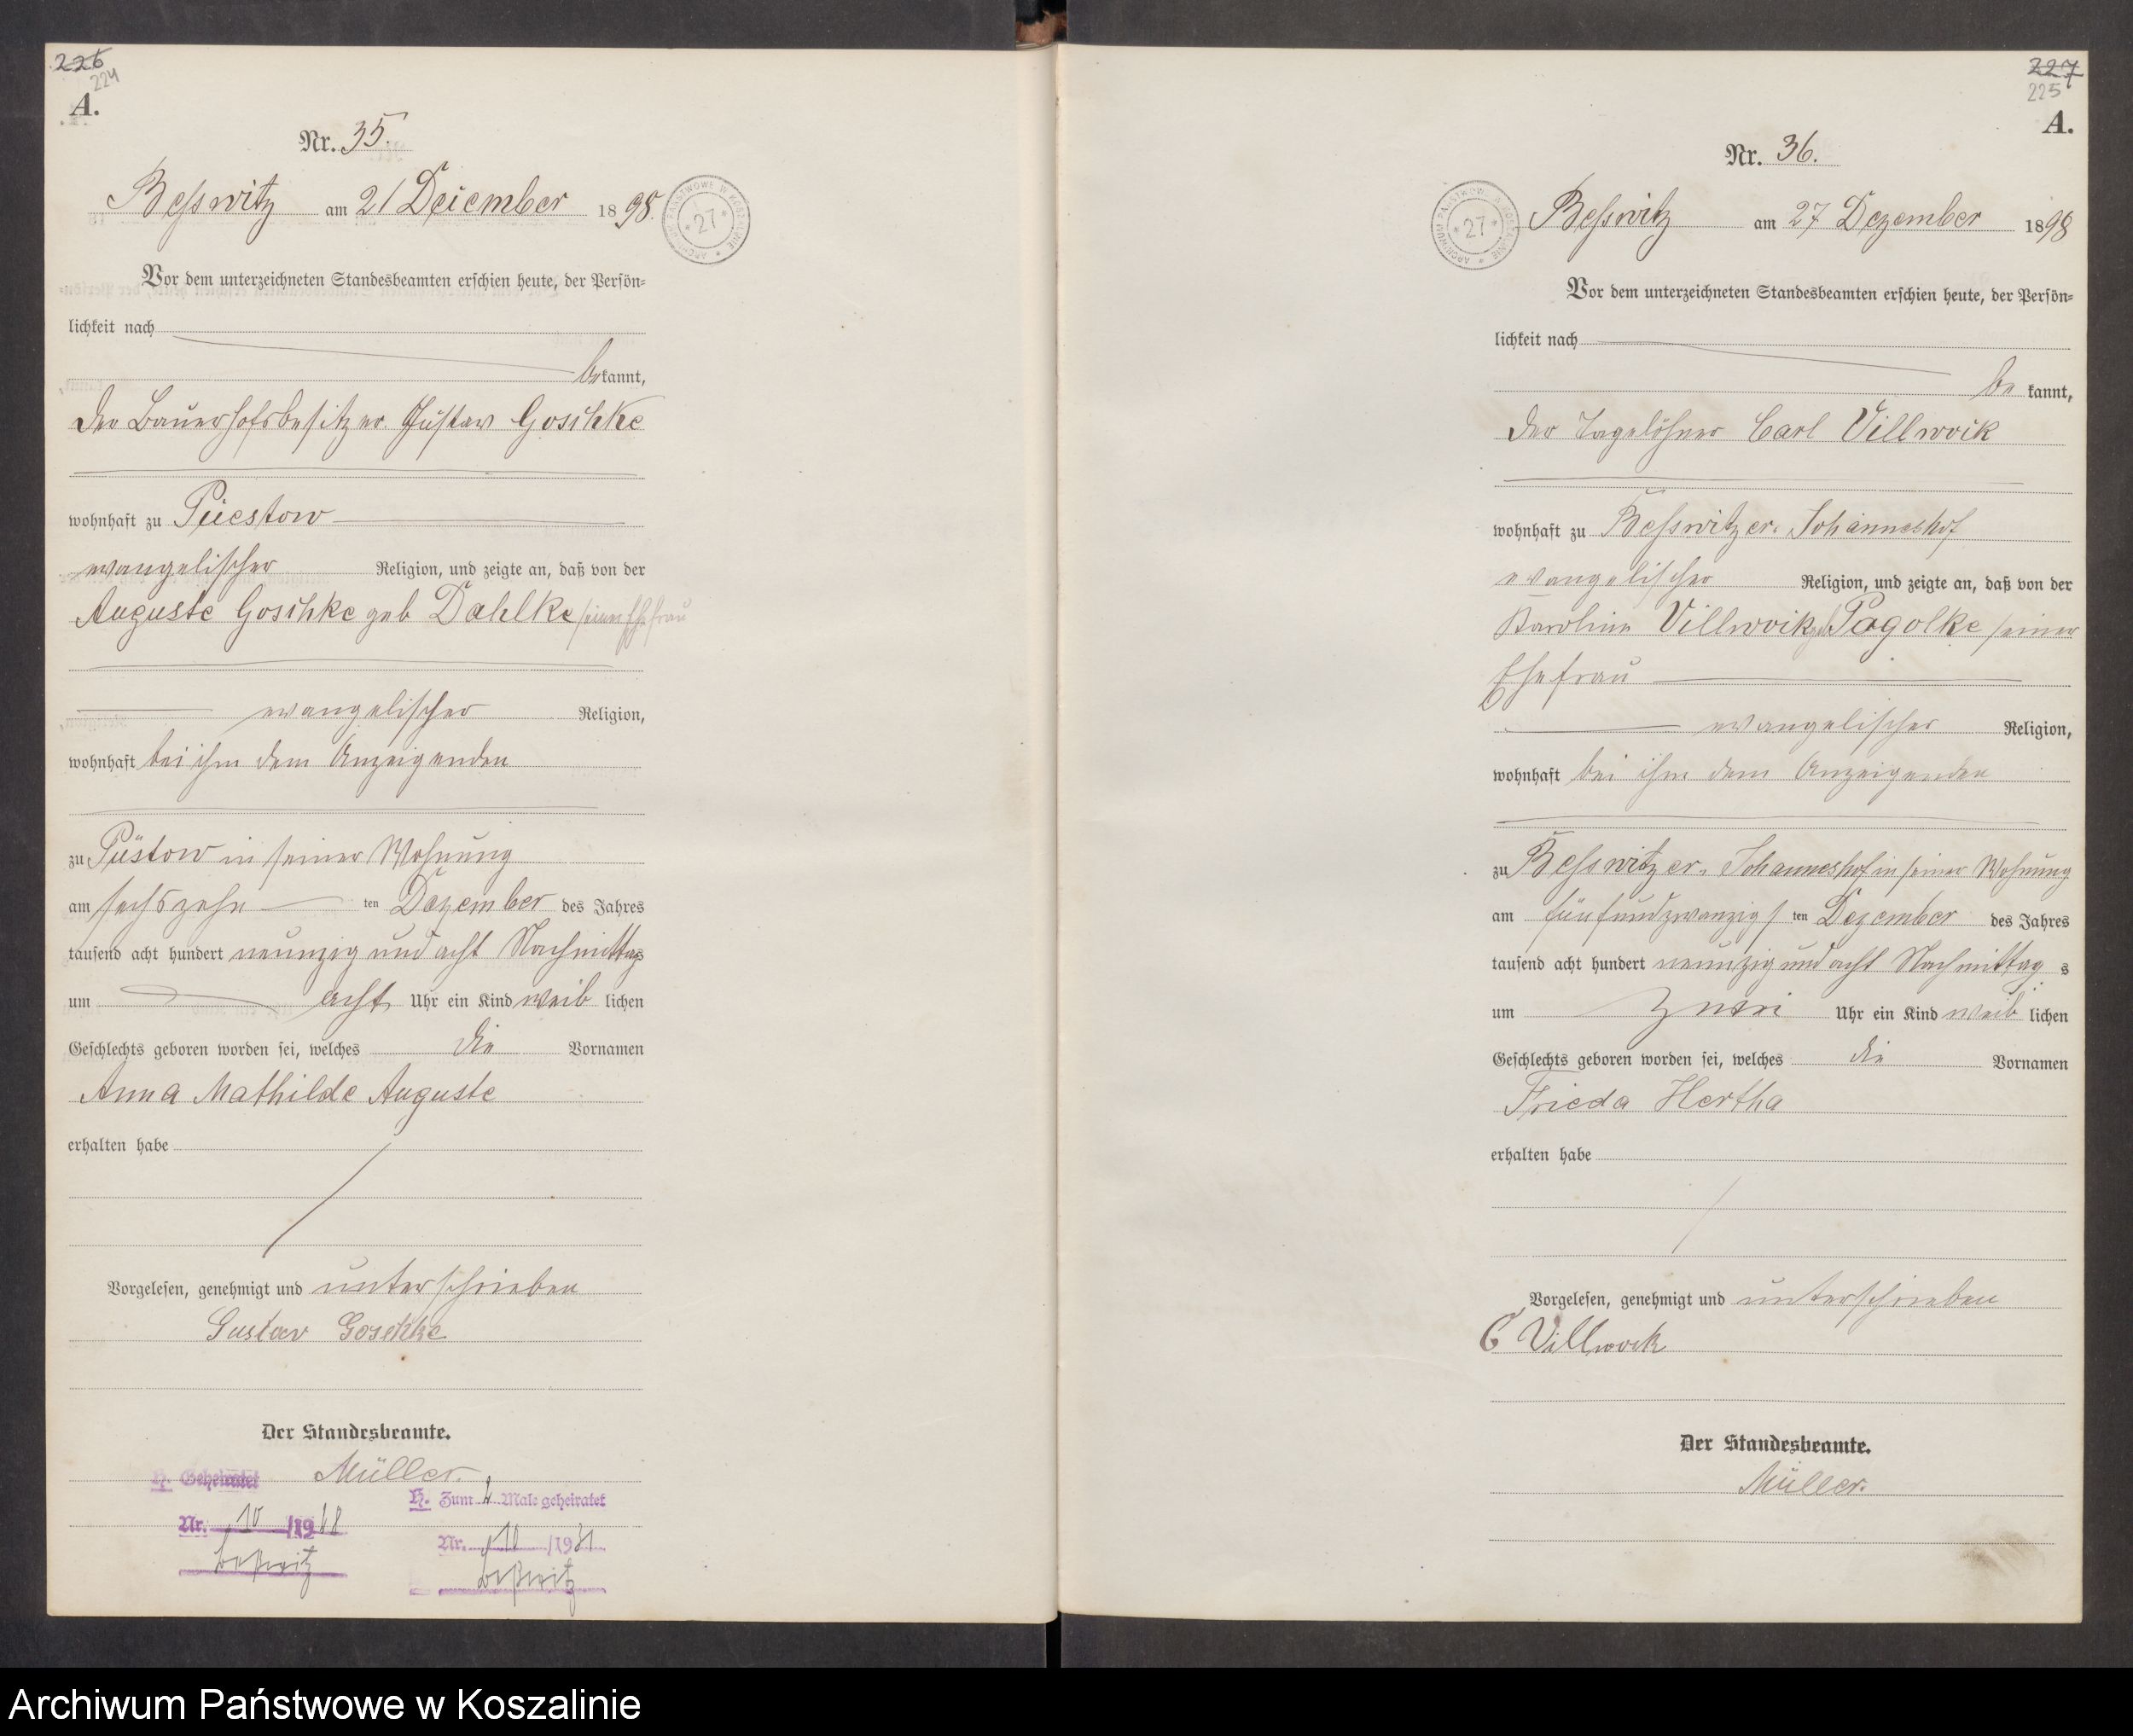 226
224
A.
Nr. 35.
Besswitz am 21 December 1898.
Vor dem unterzeichneten Standesbeamten erschien heute, der Persön=
lichkeit nach
bekannt,
der Bauerhofsbesitzer Gustav Goschke
wohnhaft zu Püestow
evangelischer Religion, und zeigte an, daß von der
Auguste Goschke geb Dahlke seiner Ehefrau
evangelischer Religion,
wohnhaft bei ihm dem Anzeigenden
zu Püstow in seiner Wohnung
am sechszehn ten Dezember des Jahres
tausend acht hundert neunzig und acht Nachmittags
um acht Uhr ein Kind weib lichen
Geschlechts geboren worden sei, welches die Vornamen
Anna Mathilde Auguste
erhalten habe
Vorgelesen, genehmigt und unterschrieben
Gustav Goschke
Der Standesbeamte.
Müller.
H. Geheiratet
Nr. 10 /19
Beßwitz
H. Zum 2 Male geheiratet
Nr. 10 /1931
Beßwitz
ARCHIWUM PAŃSTWOWE W KOSZALINIE
* 27 *
227
225
A.
Nr. 36.
Besswitz am 27 Dezember 1898
Vor dem unterzeichneten Standesbeamten erschien heute, der Persön=
lichkeit nach
be kannt,
der Tagelöhner Carl Villwock
wohnhaft zu Besswitzer. Johanneshof
evangelischer Religion, und zeigte an, daß von der
Karoline Villwock geb Pagolke seiner
Ehefrau
evangelischer Religion,
wohnhaft bei ihm dem Anzeigenden
zu Besswitzer. Johanneshof in seiner Wohnung
am fünfundzwanzigs ten Dezember des Jahres
tausend acht hundert neunzig und acht Nachmittag s
um zwei Uhr ein Kind weib lichen
Geschlechts geboren worden sei, welches die Vornamen
Frieda Hertha
erhalten habe
Vorgelesen, genehmigt und unterschrieben
C Villwock
Der Standesbeamte.
Müller.
ARCHIWUM PAŃSTWOWE W KOSZALINIE
* 27 *
Archiwum Państwowe w Koszalinie